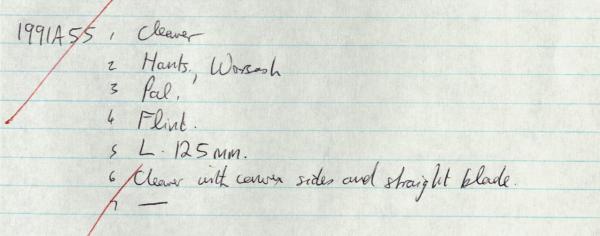 1991A55 1 Cleaver
2 Hants, Warsash
3 Pal.
4 Flint.
5 L. 125mm.
6 Cleaver with convex sides and straight blade.
7 —